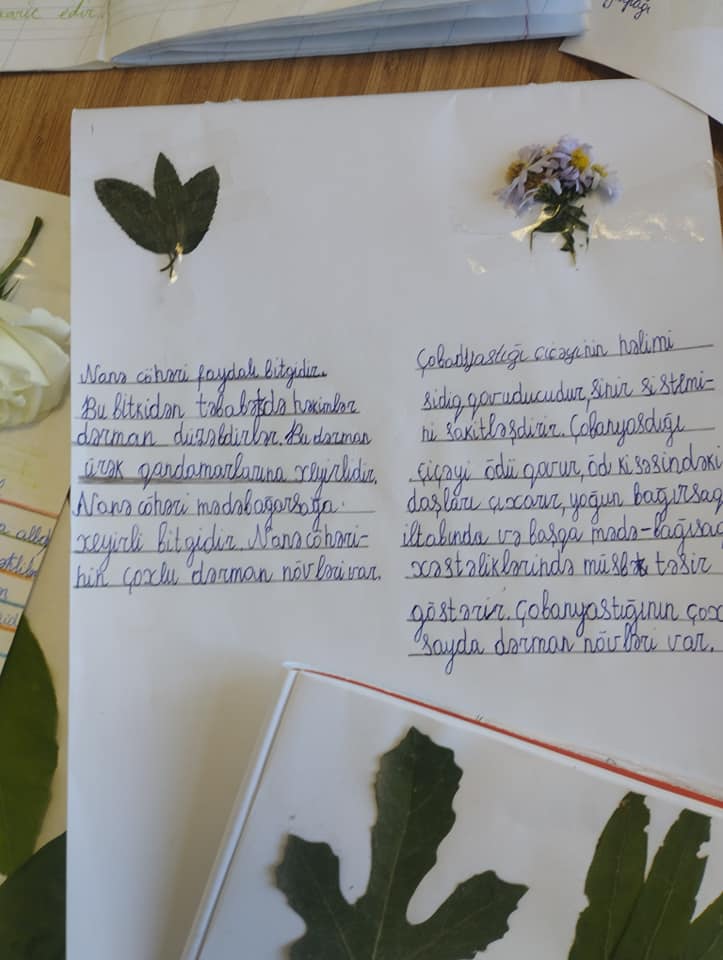 edir.
yarpağı
Nanə cöhəri faydalı bitgidir.
Bu bitkidən təbabətdə həkimlər
dərman düzəldirlər. Bu dərman
ürək qandamarlarına xeyirlidir.
Nanə cöhəri mədəbağarsağa
xeyirli bitgidir. Nanə cöhəri-
nin çoxlu dərman növləri var.
Çobadyastığı çiçəyinin həlimi
sidiq qovuducudur, sinir sistemi-
ni sakitləşdirir. Çobanyasdığı
çiçəyi ödü qovur, öd kisəsindəki
daşları çıxarır, yoğun bağırsaq
iltabında və başqa mədə-bağısaq
xəstəliklərində müsbət təsir
göstərir. Çobanyastığının çox
sayda dərman növləri var.